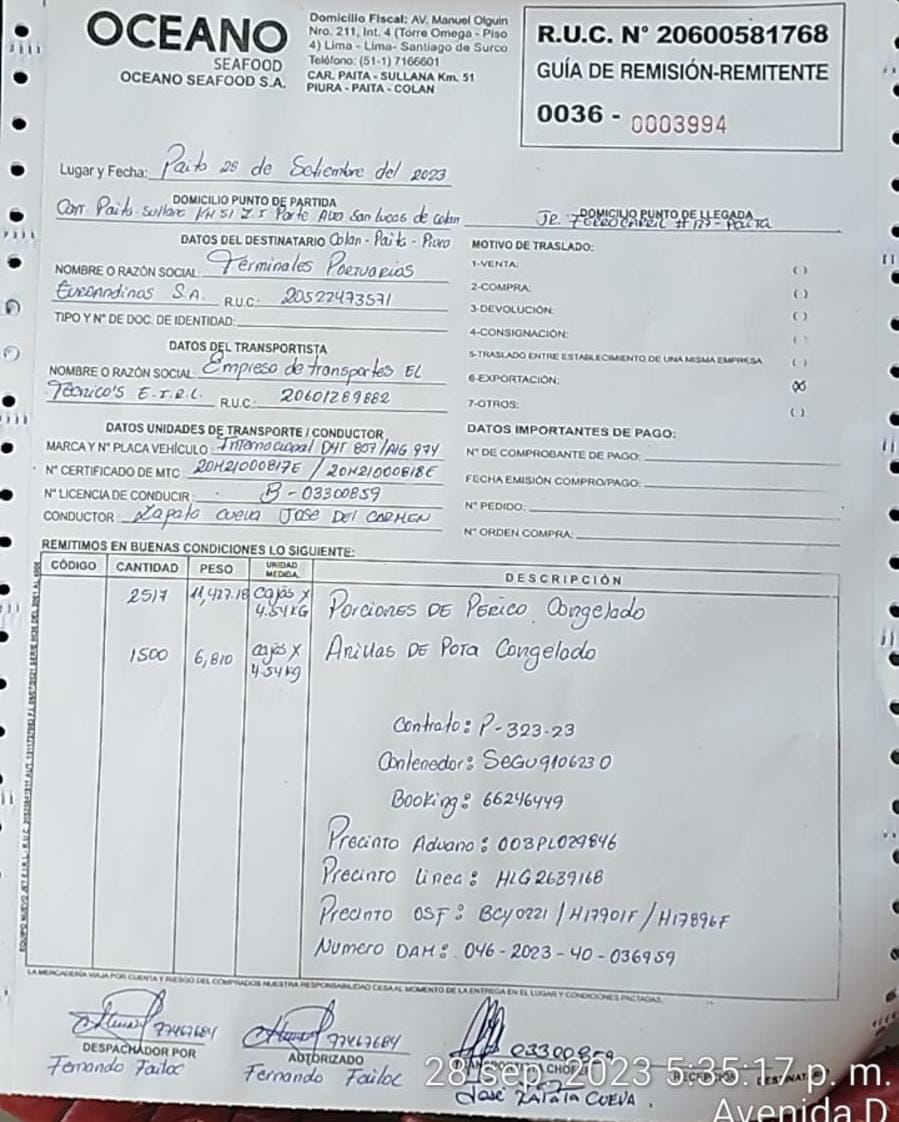 OCEANO
SEAFOOD
OCEANO SEAFOOD S.A.
Domicilio Fiscal: AV. Manuel Olguin
Nro. 211, Int. 4 (Torre Omega - Piso
4) Lima - Lima- Santiago de Surco
Teléfono: (51-1) 7166601
CAR. PAITA - SULLANA Km. 51
PIURA - PAITA - COLAN
R.U.C. N° 20600581768
GUÍA DE REMISIÓN-REMITENTE
0036 - 0003994
Lugar y Fecha: Paita 28 de Setiembre del 2023
DOMICILIO PUNTO DE PARTIDA
Carr. Paita sullana KM 51 Z.I Parte Alta San lucas de colan
Colan - Paita - Piura
DOMICILIO PUNTO DE LLEGADA
Jr. Ferrocarril #127- Paita
DATOS DEL DESTINATARIO
NOMBRE O RAZÓN SOCIAL Terminales Portuarios
Euroandinos S.A. R.U.C.: 20522473571
TIPO Y N° DE DOC. DE IDENTIDAD:
DATOS DEL TRANSPORTISTA
NOMBRE O RAZÓN SOCIAL Empresa de transportes EL
Tecnico's E.I.R.L. R.U.C.: 20601289882
DATOS UNIDADES DE TRANSPORTE / CONDUCTOR
MARCA Y N° PLACA VEHÍCULO: Internacional D4T 807/AIG 974
N° CERTIFICADO DE MTC 20M21000817E / 20M21000818E
N° LICENCIA DE CONDUCIR: B-03300859
CONDUCTOR: Zapata cueva Jose Del CARMEN
MOTIVO DE TRASLADO:
1-VENTA: ( )
2-COMPRA: ( )
3-DEVOLUCIÓN: ( )
4-CONSIGNACIÓN: ( )
5-TRASLADO ENTRE ESTABLECIMIENTO DE UNA MISMA EMPRESA ( )
6-EXPORTACIÓN: (X)
7-OTROS: ( )
DATOS IMPORTANTES DE PAGO:
N° DE COMPROBANTE DE PAGO:
FECHA EMISIÓN COMPRO/PAGO:
N° PEDIDO:
N° ORDEN COMPRA:
REMITIMOS EN BUENAS CONDICIONES LO SIGUIENTE:
CÓDIGO CANTIDAD PESO UNIDAD MEDIDA DESCRIPCIÓN
2517 11,427.18 cajas x 4.54KG Porciones DE Perico Congelado
1500 6,810 cajas x 4.54kg Anillas DE Pota Congelado
Contrato: P-323-23
Contenedor: SEGU9106230
Booking: 66246449
Precinto Aduana: 003PL029846
Precinto linea: HLG2639168
Precinto OSF: BCY0221 / H17901F / H17896F
Numero DAM: 046-2023-40-036959
LA MERCADERÍA VIAJA POR CUENTA Y RIESGO DEL COMPRADOR NUESTRA RESPONSABILIDAD CESA AL MOMENTO DE LA ENTREGA EN EL LUGAR Y CONDICIONES PACTADAS.
97467684
DESPACHADOR POR
Fernando Failoc
97467684
AUTORIZADO
Fernando Failoc
03300859
José ZAPATA CUEVA.
28 sep. 2023 5:35:17 p. m.
Avenida D